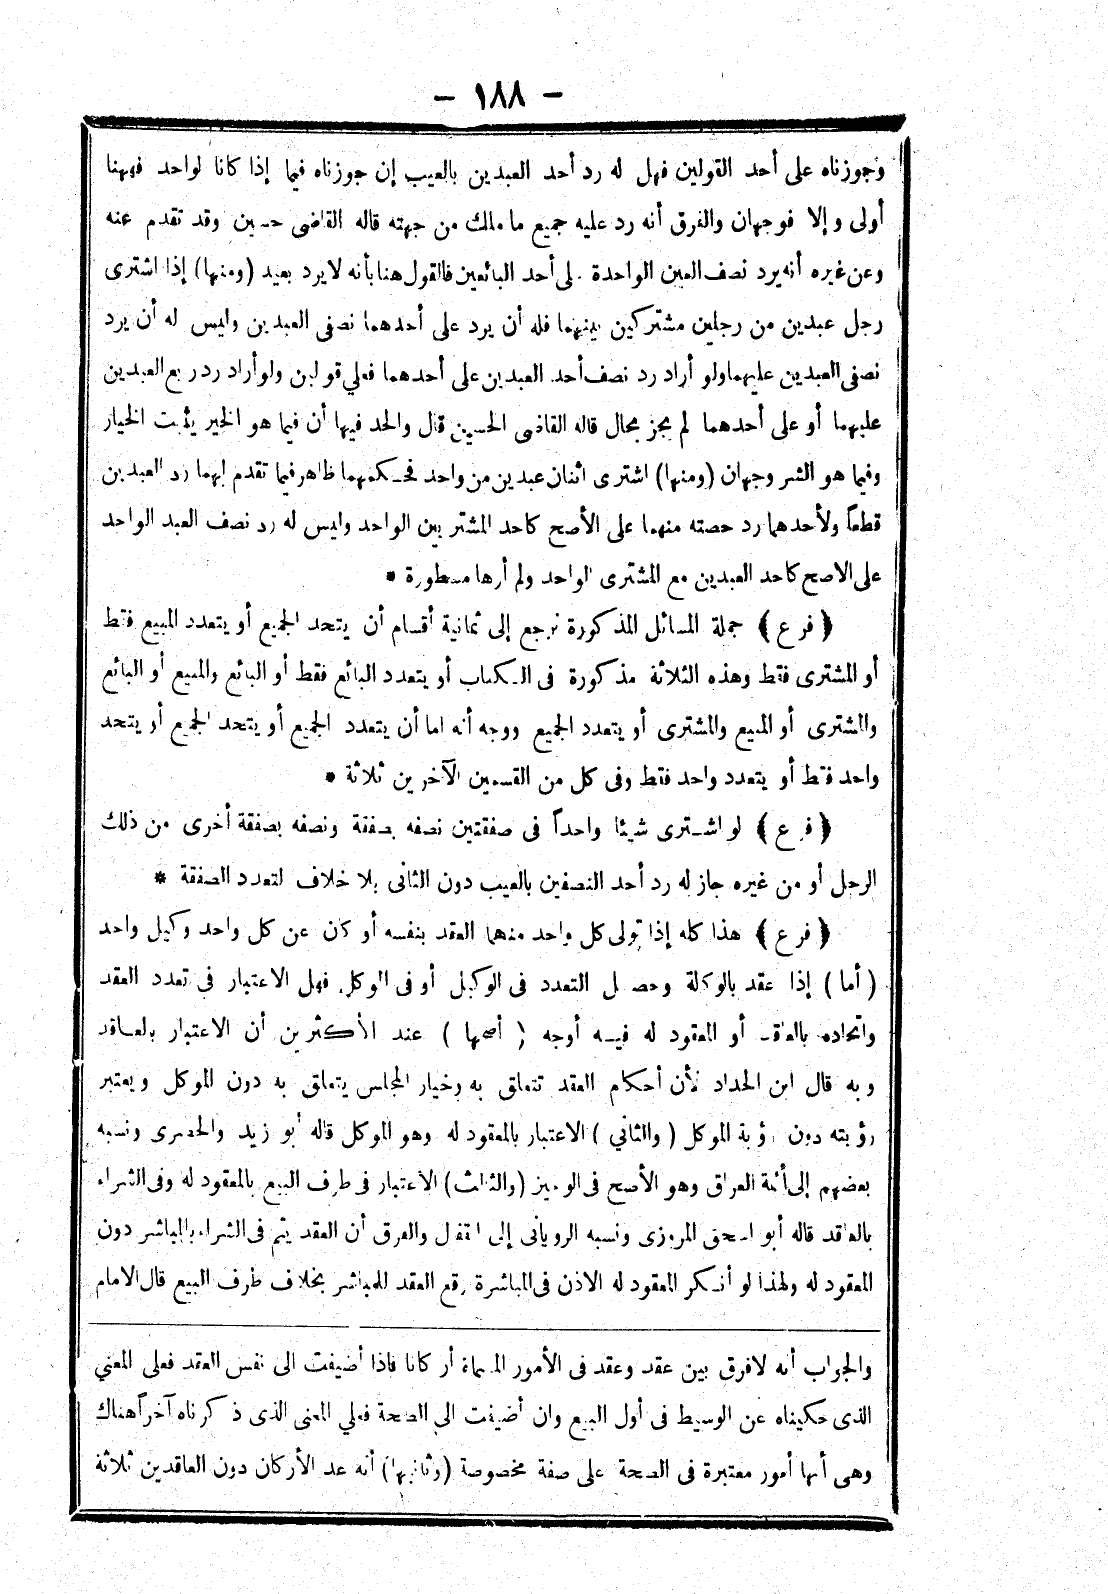 - ١٨٨ -
وجوزناه على أحد القولين فهل له رد أحد العبدين بالعيب إن جوزناه فيما إذا كانا لواحد فههنا
أولى وإلا فوجهان والفرق أنه رد عليه جميع ما ملك من جهته قاله القاضى حسين وقد تقدم عنه
وعن غيره أنه يرد نصف العين الواحدة على أحد البائعين فالقول هنا بأنه لا يرد بعيد (ومنها) إذا اشترى
رجل عبدين من رجلين مشتركين بينهما فله أن يرد على أحدهما نصفى العبدين وليس له أن يرد
نصفى العبدين عليهما ولو أراد رد نصف أحد العبدين على أحدهما فعلي قولين ولو أراد رد ربع العبدين
عليهما أو على أحدهما لم يجز بحال قاله القاضى الحسين قال والحد فيها أن فيما هو الخير يثبت الخيار
وفيما هو الشر وجهان (ومنها) اشترى اثنان عبدين من واحد فحكمهما ظاهر فيما تقدم لهما رد العبدين
قطعاً ولأحدهما رد حصته منهما على الأصح كاحد المشتريين الواحد وليس له رد نصف العبد الواحد
على الاصح كاحد العبدين مع المشترى الواحد ولم أرها مسطورة *
﴿ فرع ﴾ جملة المسائل المذكورة ترجع إلى ثمانية أقسام أن يتحد الجميع أو يتعدد المبيع فقط
أو المشترى فقط وهذه الثلاثة مذكورة فى الكتاب أو يتعدد البائع فقط أو البائع والمبيع أو البائع
والمشترى أو المبيع والمشترى أو يتعدد الجميع ووجه أنه اما أن يتعدد الجميع أو يتحد الجميع أو يتحد
واحد فقط أو يتعدد واحد فقط وفى كل من القسمين الآخرين ثلاثة *
﴿ فرع ﴾ لو اشترى شيئا واحداً فى صفقتين نصفه بصفقة ونصفه بصفقة أخرى من ذلك
الرجل أو من غيره جاز له رد أحد النصفين بالعيب دون الثانى بلا خلاف لتعدد الصفقة *
﴿ فرع ﴾ هذا كله إذا تولى كل واحد منهما العقد بنفسه أو كان عن كل واحد وكيل واحد
( أما ) إذا عقد بالوكالة وحصل التعدد فى الوكيل أو فى الموكل فهل الاعتبار فى تعدد العقد
واتحاده بالعاقد أو المعقود له فيه أوجه ( أصحها ) عند الأكثرين أن الاعتبار بالعاقد
وبه قال ابن الحداد لأن أحكام العقد تتعلق به وخيار المجلس يتعلق به دون الموكل ويعتبر
رؤيته دون رؤية الموكل ( والثاني ) الاعتبار بالمعقود له وهو الموكل قاله أبو زيد والخضرى ونسبه
بعضهم إلى أئمة العراق وهو الأصح فى الوجيز (والثالث) الاعتبار فى طرف البيع بالمعقود له وفى الشراء
بالعاقد قاله أبو اسحق المروزى ونسبه الرويانى إلى القفال والفرق أن العقد يتم فى الشراء بالمباشر دون
المعقود له ولهذا لو أنكر المعقود له الاذن فى المباشرة وقع العقد للمباشر بخلاف طرف البيع قال الامام
والجواب أنه لا فرق بين عقد وعقد فى الأمور المسماة أركانا فاذا أضيفت الى نفس العقد فعلى المعني
الذى حكيناه عن الوسيط فى أول البيع وان أضيفت الى الصحة فعلي المعنى الذى ذكرناه آخراً هناك
وهى أنها أمور معتبرة فى الصحة على صفة مخصوصة (وثانيها) أنه عد الأركان دون العاقدين ثلاثة